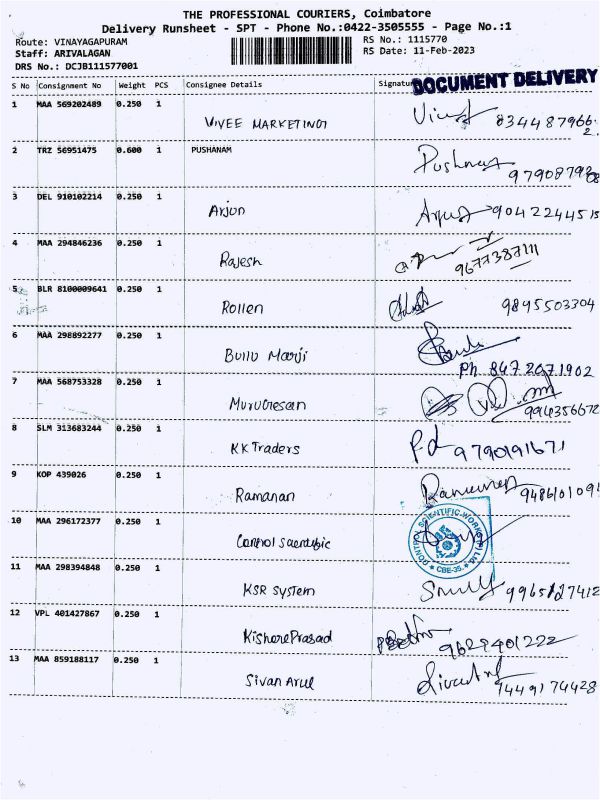 THE PROFESSIONAL COURIERS, Coimbatore
Delivery Runsheet - SPT - Phone No.:0422-3505555 - Page No.:1
Route: VINAYAGAPURAM
RS No.: 1115770
Staff: ARIVALAGAN
RS Date: 11-Feb-2023
DRS No.: DCJB111577001
S No Consignment No Weight PCS Consignee Details Signatu
DOCUMENT DELIVERY
1 MAA 569202489 0.250 1 VIVEE MARKETING 8344879662
2 TRZ 56951475 0.600 1 PUSHANAM Pushnam
3 DEL 910102214 0.250 1 Arjun 9042244515
4 MAA 294846236 0.250 1 Rajesh
5 BLR 8100009641 0.250 1 Rollen 9895503304
6 MAA 298892277 0.250 1 Bullu Maarji Ph 8472071902
7 MAA 568753328 0.250 1 Murugesan 994356672
8 SLM 313683244 0.250 1 KK Traders 9790191671
9 KOP 439026 0.250 1 Ramanan
10 MAA 296172377 0.250 1 Control
CBE-35.
11 MAA 298394848 0.250 1 KSR System
12 VPL 401427867 0.250 1 Kishore Prasad 9629401222
13 MAA 859188117 0.250 1 Sivan Arul